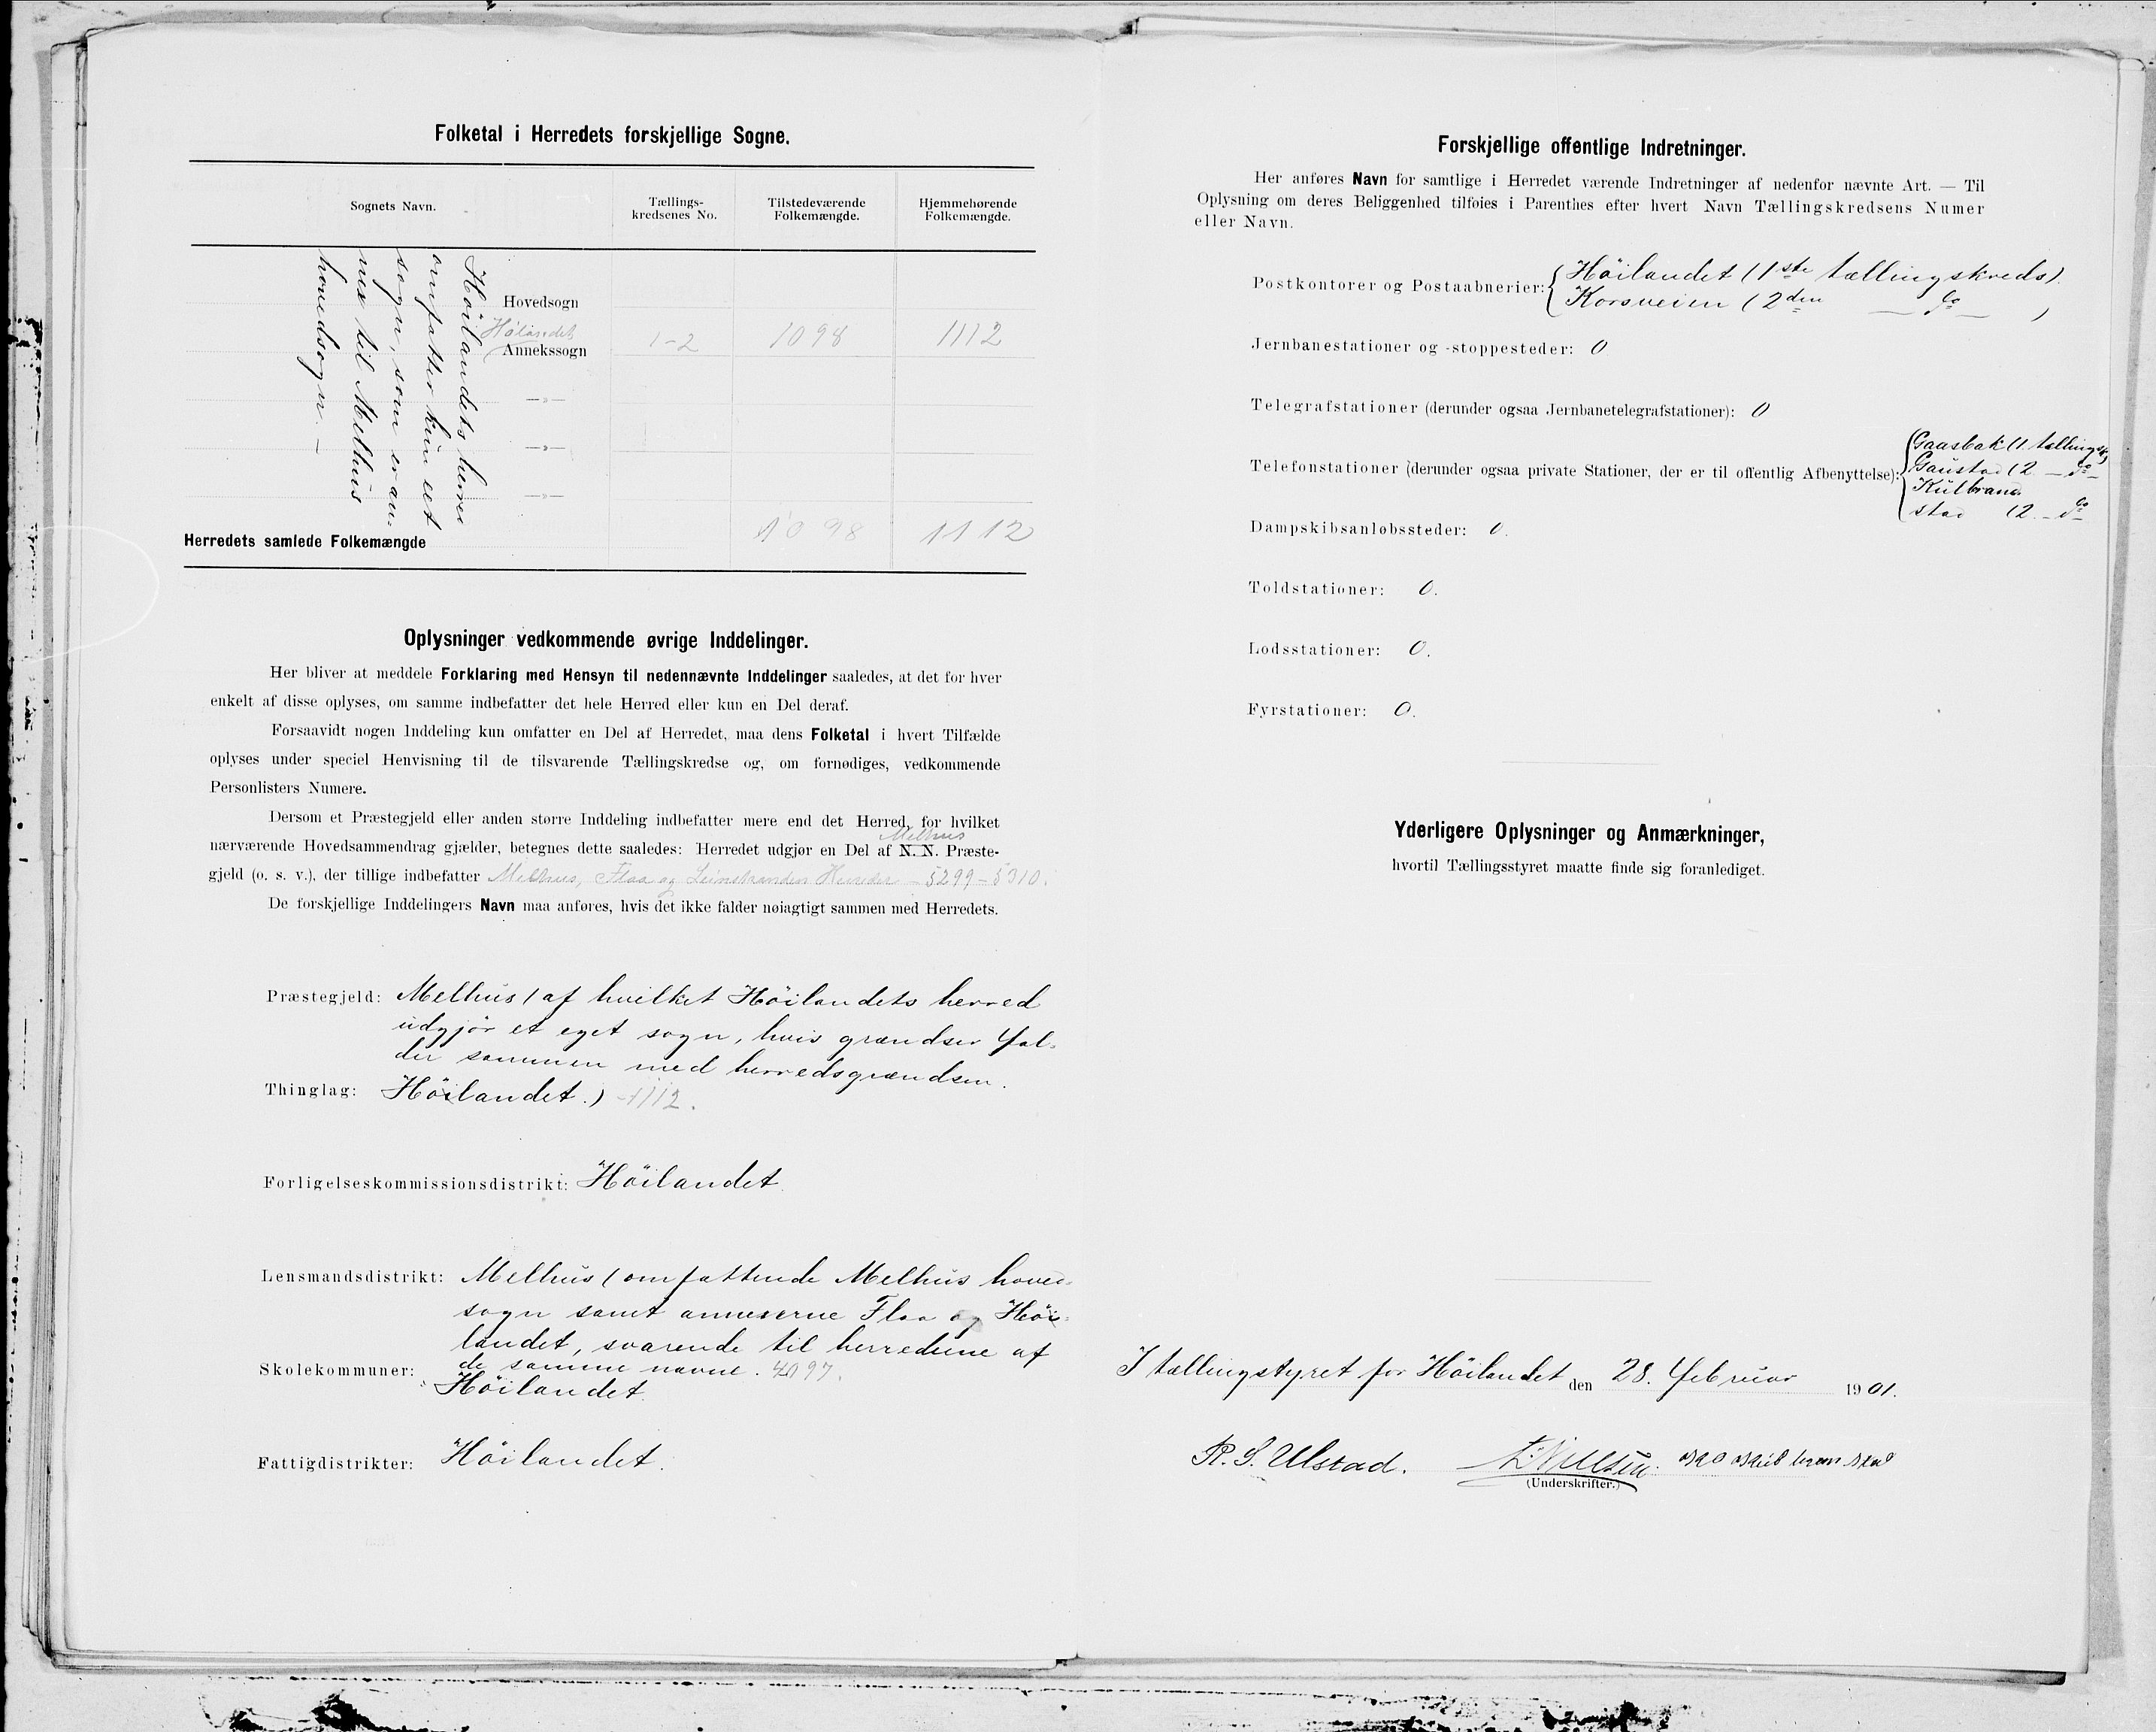 Folketal i Herredets forskjellige Sogne.
Sognets Navn.
Tællings-
kredsenes No.
Tilstedeværende
Folkemængde.
Hjemmehørende
Folkemængde.
Höilandets herre
omfatter kun eet
sogn, som er an-
nex til Melhus
hovedsogn. —
Hovedsogn
Hølandet
Annekssogn 1-2 1098 1112
—»—
—»—
—»—
Herredets samlede Folkemængde 1098 1112
Oplysninger vedkommende øvrige Inddelinger.
Her bliver at meddele Forklaring med Hensyn til nedennævnte Inddelinger saaledes, at det for hver
enkelt af disse oplyses, om samme indbefatter det hele Herred eller kun en Del deraf.
Forsaavidt nogen Inddeling kun omfatter en Del af Herredet, maa dens Folketal i hvert Tilfælde
oplyses under speciel Henvisning til de tilsvarende Tællingskredse og, om fornødiges, vedkommende
Personlisters Numere.
Dersom et Præstegjeld eller anden større Inddeling indbefatter mere end det Herred, for hvilket
Melhus
nærværende Hovedsammendrag gjælder, betegnes dette saaledes: Herredet udgjør en Del af N. N. Præste-
gjeld (o. s. v.), der tillige indbefatter Melhus, Flaa og Leinstrandens Herreder – 5299 – 5310.
De forskjellige Inddelingers Navn maa anføres, hvis det ikke falder nøiagtigt sammen med Herredets.
Præstegjeld: Melhus (af hvilket Höilandets herred
udgjör et eget sogn, hvis grændser fal-
der sammen med herredsgrændsen.
Thinglag: Höilandet.) 1112.
Forligelseskommissionsdistrikt: Höilandet
Lensmandsdistrikt: Melhus (omfattende Melhus hoved-
sogn samt annexerne Flaa og Höi-
landet, svarende til herrederne af
de samme navne. 4097.
Skolekommuner: Höilandet
Fattigdistrikter: Höilandet.
Forskjellige offentlige Indretninger.
Her anføres Navn for samtlige i Herredet værende Indretninger af nedenfor nævnte Art. — Til
Oplysning om deres Beliggenhed tilføies i Parenthes efter hvert Navn Tællingskredsens Numer
eller Navn.
Postkontorer og Postaabnerier: Höilandet (1ste tællingskreds).
Korsveien (2den — do — )
Jernbanestationer og -stoppesteder: 0
Telegrafstationer (derunder ogsaa Jernbanetelegrafstationer): 0
Telefonstationer (derunder ogsaa private Stationer, der er til offentlig Afbenyttelse): Gaasbak (1. tællingsk)
Gaustad (2 — do —
Kulbrand
stad (2 — do
Dampskibsanløbssteder: 0.
Toldstationer: 0.
Lodsstationer: 0.
Fyrstationer: 0.
Yderligere Oplysninger og Anmærkninger,
hvortil Tællingsstyret maatte finde sig foranlediget.
I tællingstyret for Höilandet den 28. februar 1901.
R. S. Ulstad.
(Underskrifter.)